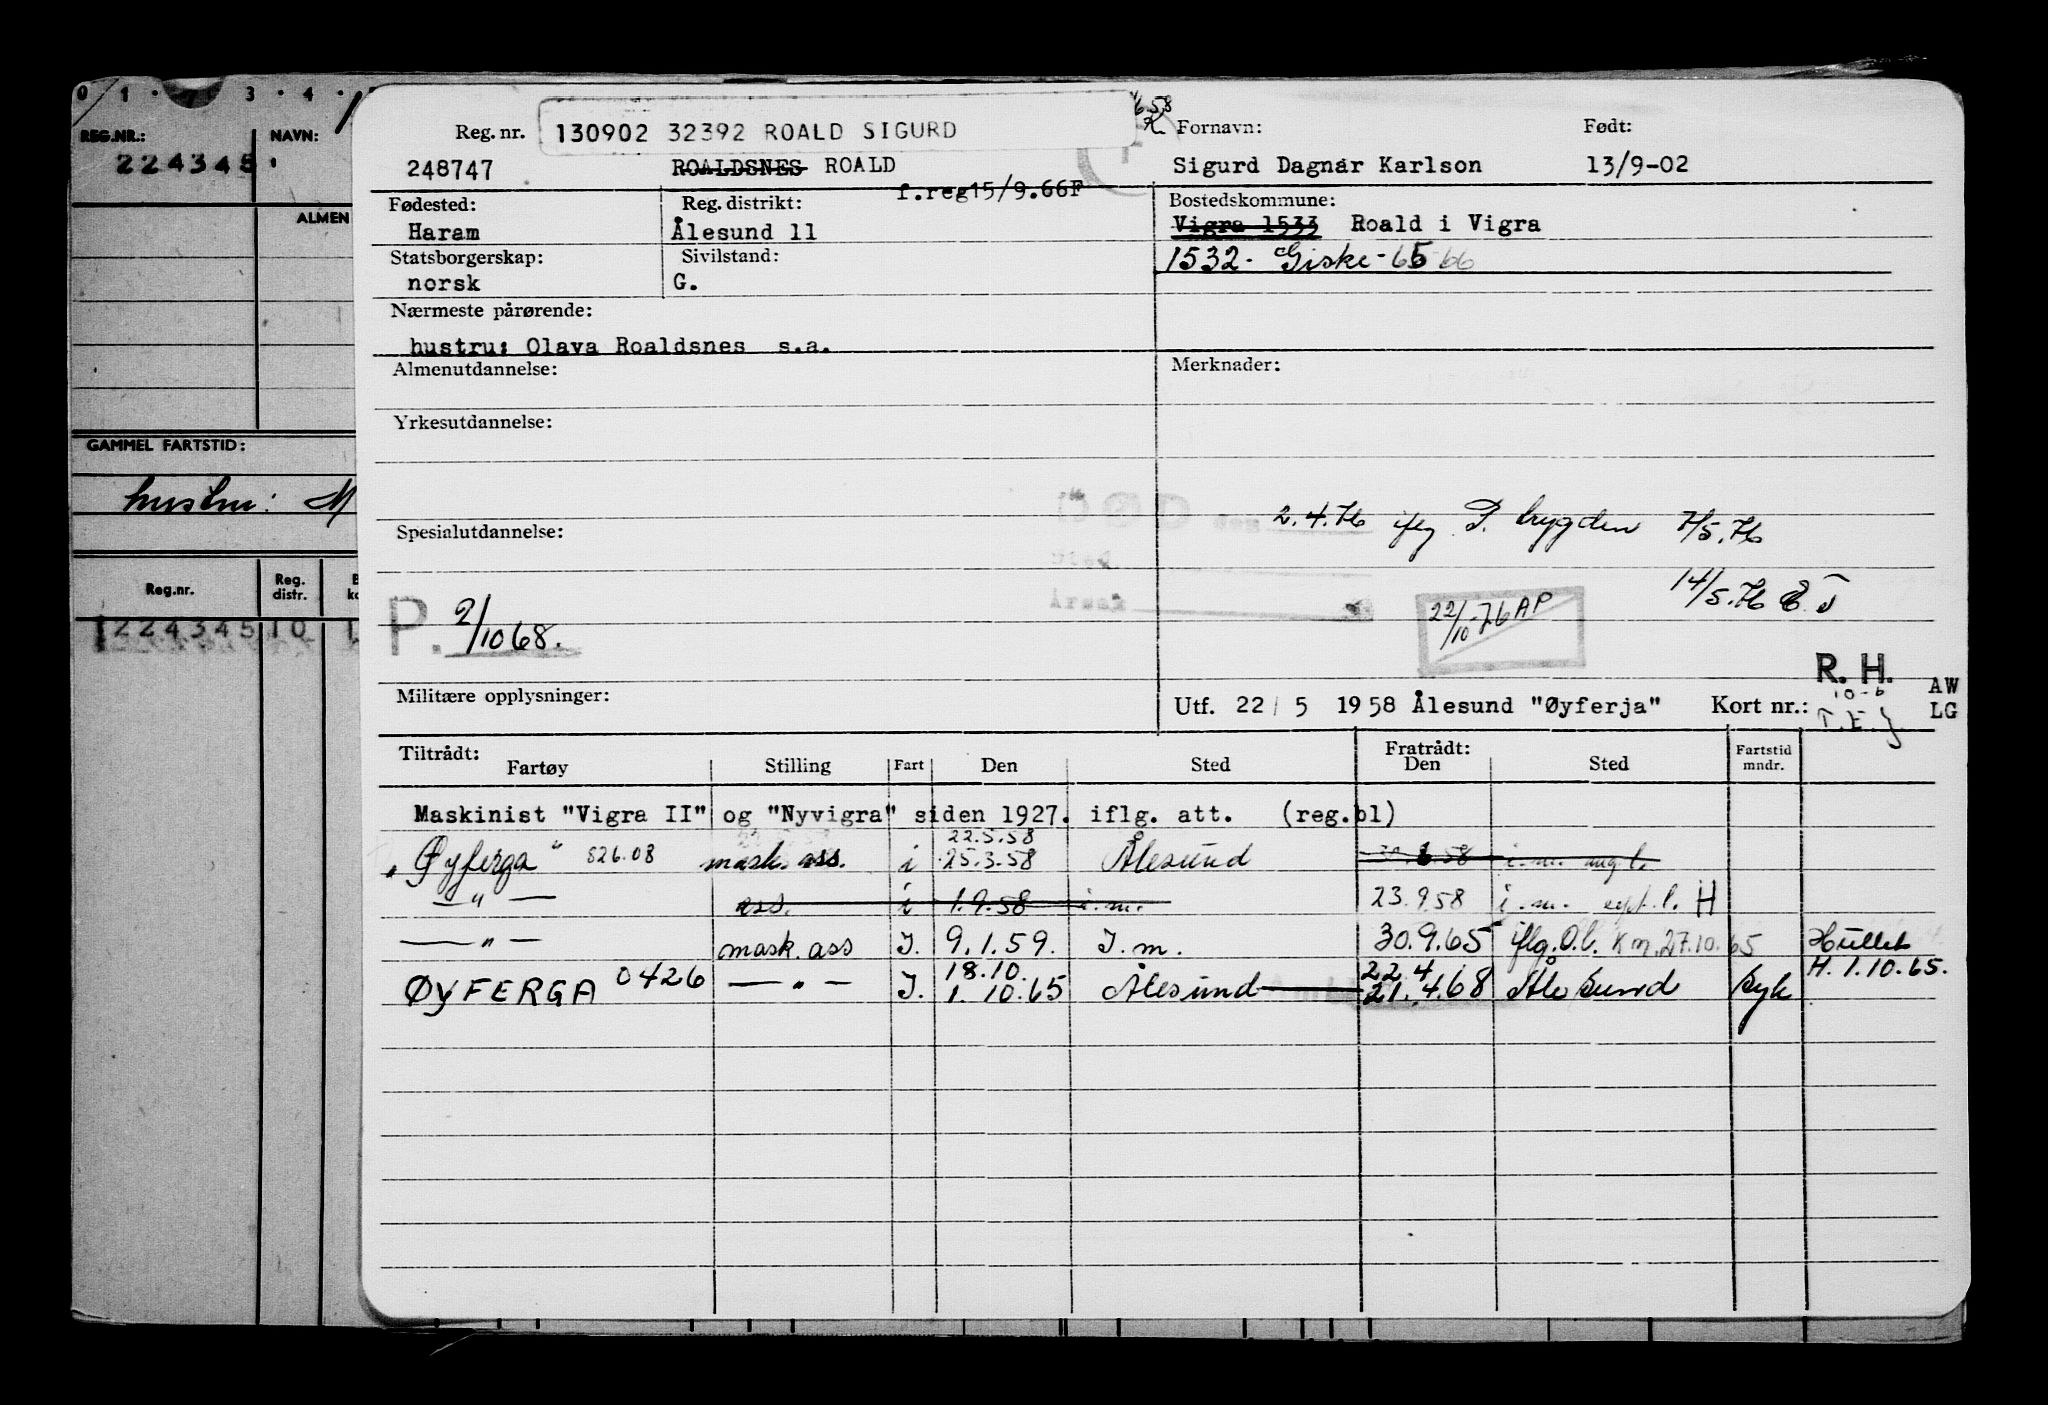 0 1 · 3 · 4 ·
REG.NR.: NAVN:
224345
ALMEN
GAMMEL FARTSTID:
hustru: M
Reg.nr. Reg. distr.
224345 10 1
6.58
Reg. nr. 130902 32392 ROALD SIGURD Fornavn: Født:
248747 ROALDSNES ROALD Sigurd Dagnar Karlson 13/9-02
f.reg15/9.66F
Fødested: Reg. distrikt: Bostedskommune:
Haram Ålesund 11 Vigra 1533 Roald i Vigra
Statsborgerskap: Sivilstand: 1532- Giske-65 66
norsk G.
Nærmeste pårørende:
hustru: Olava Roaldsnes s.a.
Almenutdannelse: Merknader:
Yrkesutdannelse:
DØD den 2.4.76 P. bygden 7/5.76
Spesialutdannelse: Sted
Årsak 14/5.76
P. 2/10 68. 22/10-76 AP
R. H.
Militære opplysninger: Utf. 22/5 1958 Ålesund "Øyferja" Kort nr.: 10-6 AW
T.E.J LG
Tiltrådt: Fratrådt:
Fartøy Stilling Fart Den Sted Den Sted Fartstid mndr.
Maskinist "Vigra II" og "Nyvigra" siden 1927. iflg. att. (reg.bl)
22.5.58
"Øyferga" 826.08 mask. ass. i 25.3.58 Ålesund 30.6.58 i.m.
— " — ass. i 1.9.58 i.m. 23.9.58 i.m. H
— " — mask. ass I. 9.1.59. I.m. 30.9.65 iflg. O.l. Km.27.10.65 Hullet
18.10. 22 4 H. 1.10.65.
ØYFERGA 0426 — " — I. 1. 10.65 Ålesund 21.4.68 Ålesund Syk